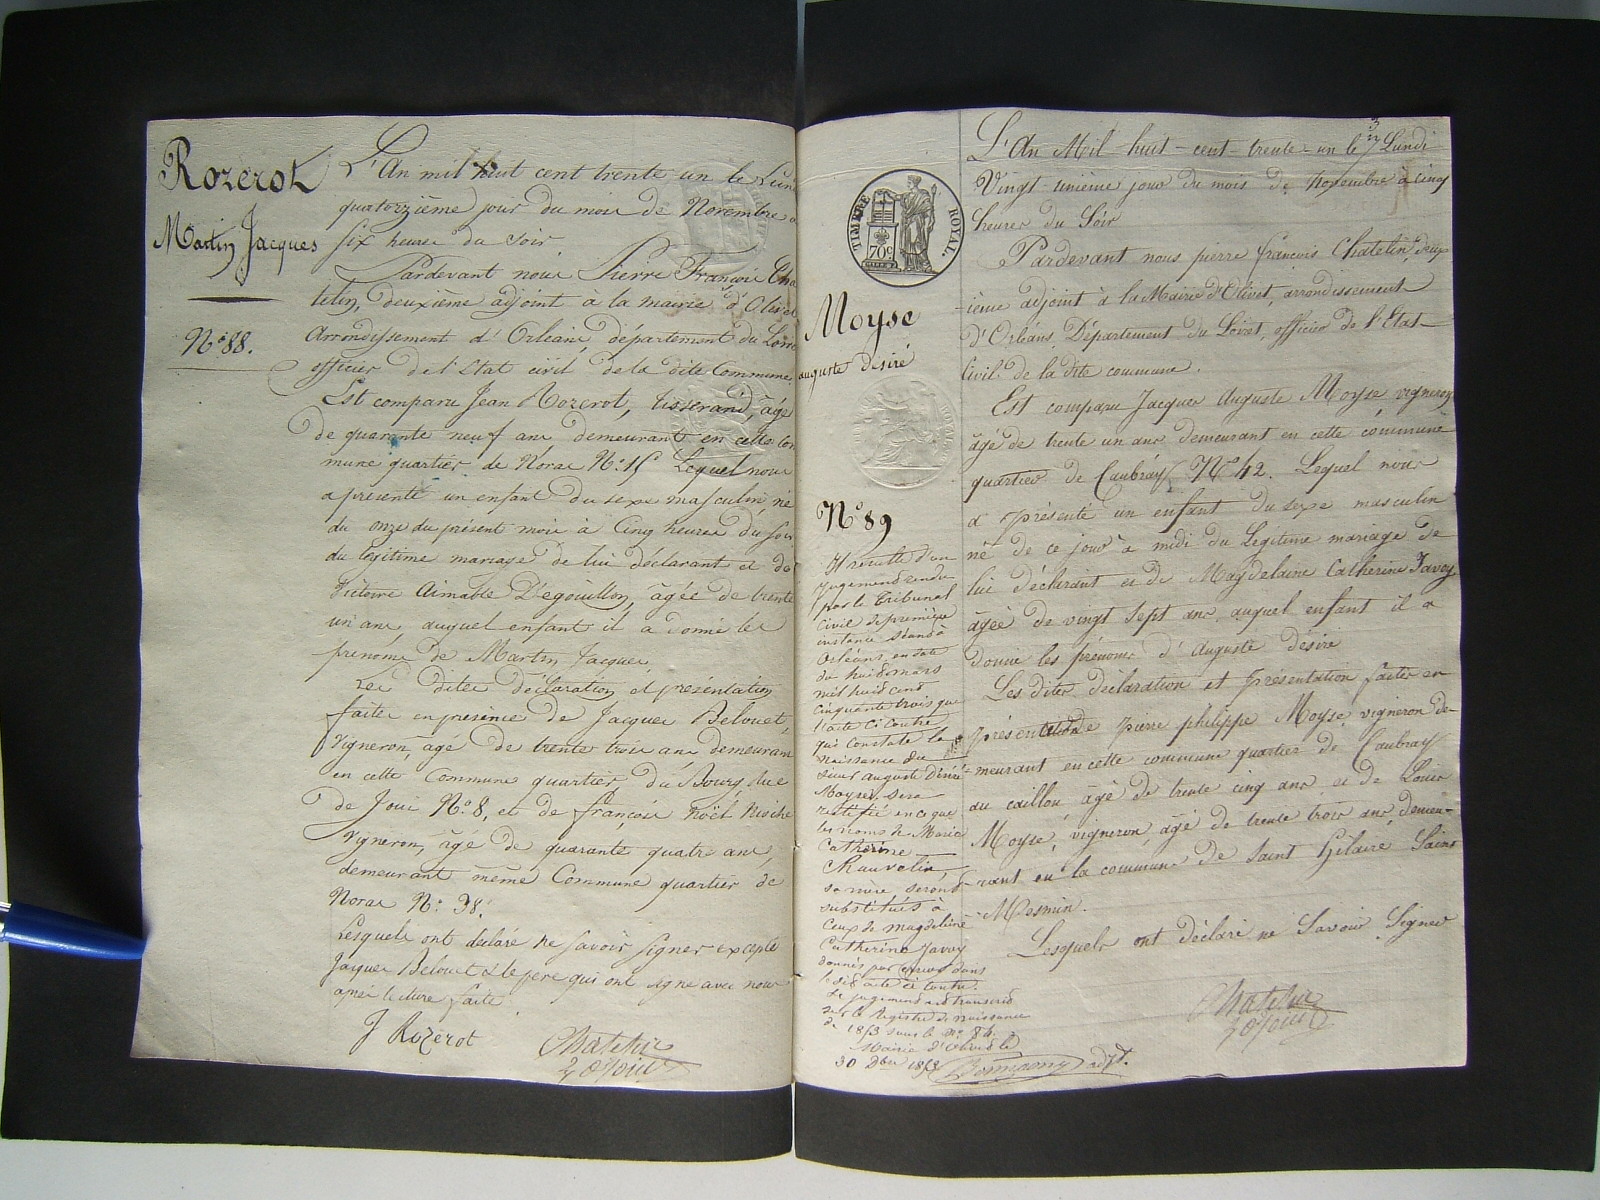 Rozerot
Martin Jacques
N.° 88.
L'An mil huit cent trente un le Lun
quatorzième jour du mois de Novembre a
six heures du soir
Pardevant nous Pierre François Cha
telin, deuxième adjoint à la mairie d'Olivet
Arrondissement d'Orléans, département du Loiret
officier de l'Etat civil de la dite Commune.
Est comparu Jean Rozerot, tisserand, âgé
de quarante neuf ans demeurant en cette com
mune quartier de Norac N.° 15 Lequel nous
a présenté un enfant du sexe masculin, né
du onze du présent mois à Cinq heures du soir
du légitime mariage de lui déclarant et de
Victoire Aimable Dégouillon, âgée de trente
un ans auquel enfant il a donné les
prénoms de Martin Jacques,
Les dites déclaration et présentation
faites en présence de Jacques Belouet,
Vigneron, âgé de trente trois ans demeurant
en cette Commune quartier du Bourg rue
de Joui N.° 8, et de françois Noël
Vigneron, âgé de quarante quatre ans,
demeurant même Commune quartier de
Norac N.° 38.
Lesquels ont déclaré ne savoir signer excepté
Jacques Belouet & le père qui ont signé avec nous
après lecture faite
J Rozerot
Chatelin
TIMBRE ROYAL.
70c
Moyse
auguste désiré
N.° 89
Il résulte d'un
jugement rendu
par le Tribunal
Civil de première
instance séant à
Orléans, en date
du huit mars
mil huit cent
cinquante trois que
l'acte ci contre
qui constate la
naissance du
sieur auguste désiré
Moyse, sera
rectifié en ce que
les noms de Marie
Catherine
Chauvelin,
sa mère seront
substitués à
ceux de Magdeleine
Catherine Javoy
donnés par erreur dans
le dit acte ci contre.
Le jugement est transcrit
sur le Registre de naissance
de 1853 sous le N.° 84.
Mairie d'Olivet le
30 Xbre 1853
adjt.
L'An Mil huit-cent-trente-un le Lundi
Vingt-unième jour du mois de Novembre à cinq
heures du Soir
Pardevant nous pierre françois Chatelin, deux
-ième adjoint à la Mairie d'Olivet, arrondissement
d'Orléans, Département du Loiret, officier de l'Etat-
Civil de la dite commune.
Est comparu Jacques Auguste Moyse vigneron
âgé de trente un ans demeurant en cette commune
quartier de Caubray N.° 42. Lequel nous
a présenté un enfant du sexe masculin
né de ce jour à midi du Légitime mariage de
lui déclarant et de Magdelaine Catherine Javoy
âgée de vingt sept ans auquel enfant il a
donné les prénoms d'Auguste désiré
Les dites déclaration et présentation faites en
de pierre philippe Moyse, vigneron de-
-meurant en cette commune quartier de Caubray
au caillou, âgé de trente cinq ans et de Louis
Moyse, vigneron, âgé de trente trois ans, demeu-
-rant en la commune de Saint Hilaire Saint
Mesmin.
Lesquels ont déclaré ne Savoir Signer
Chatelin